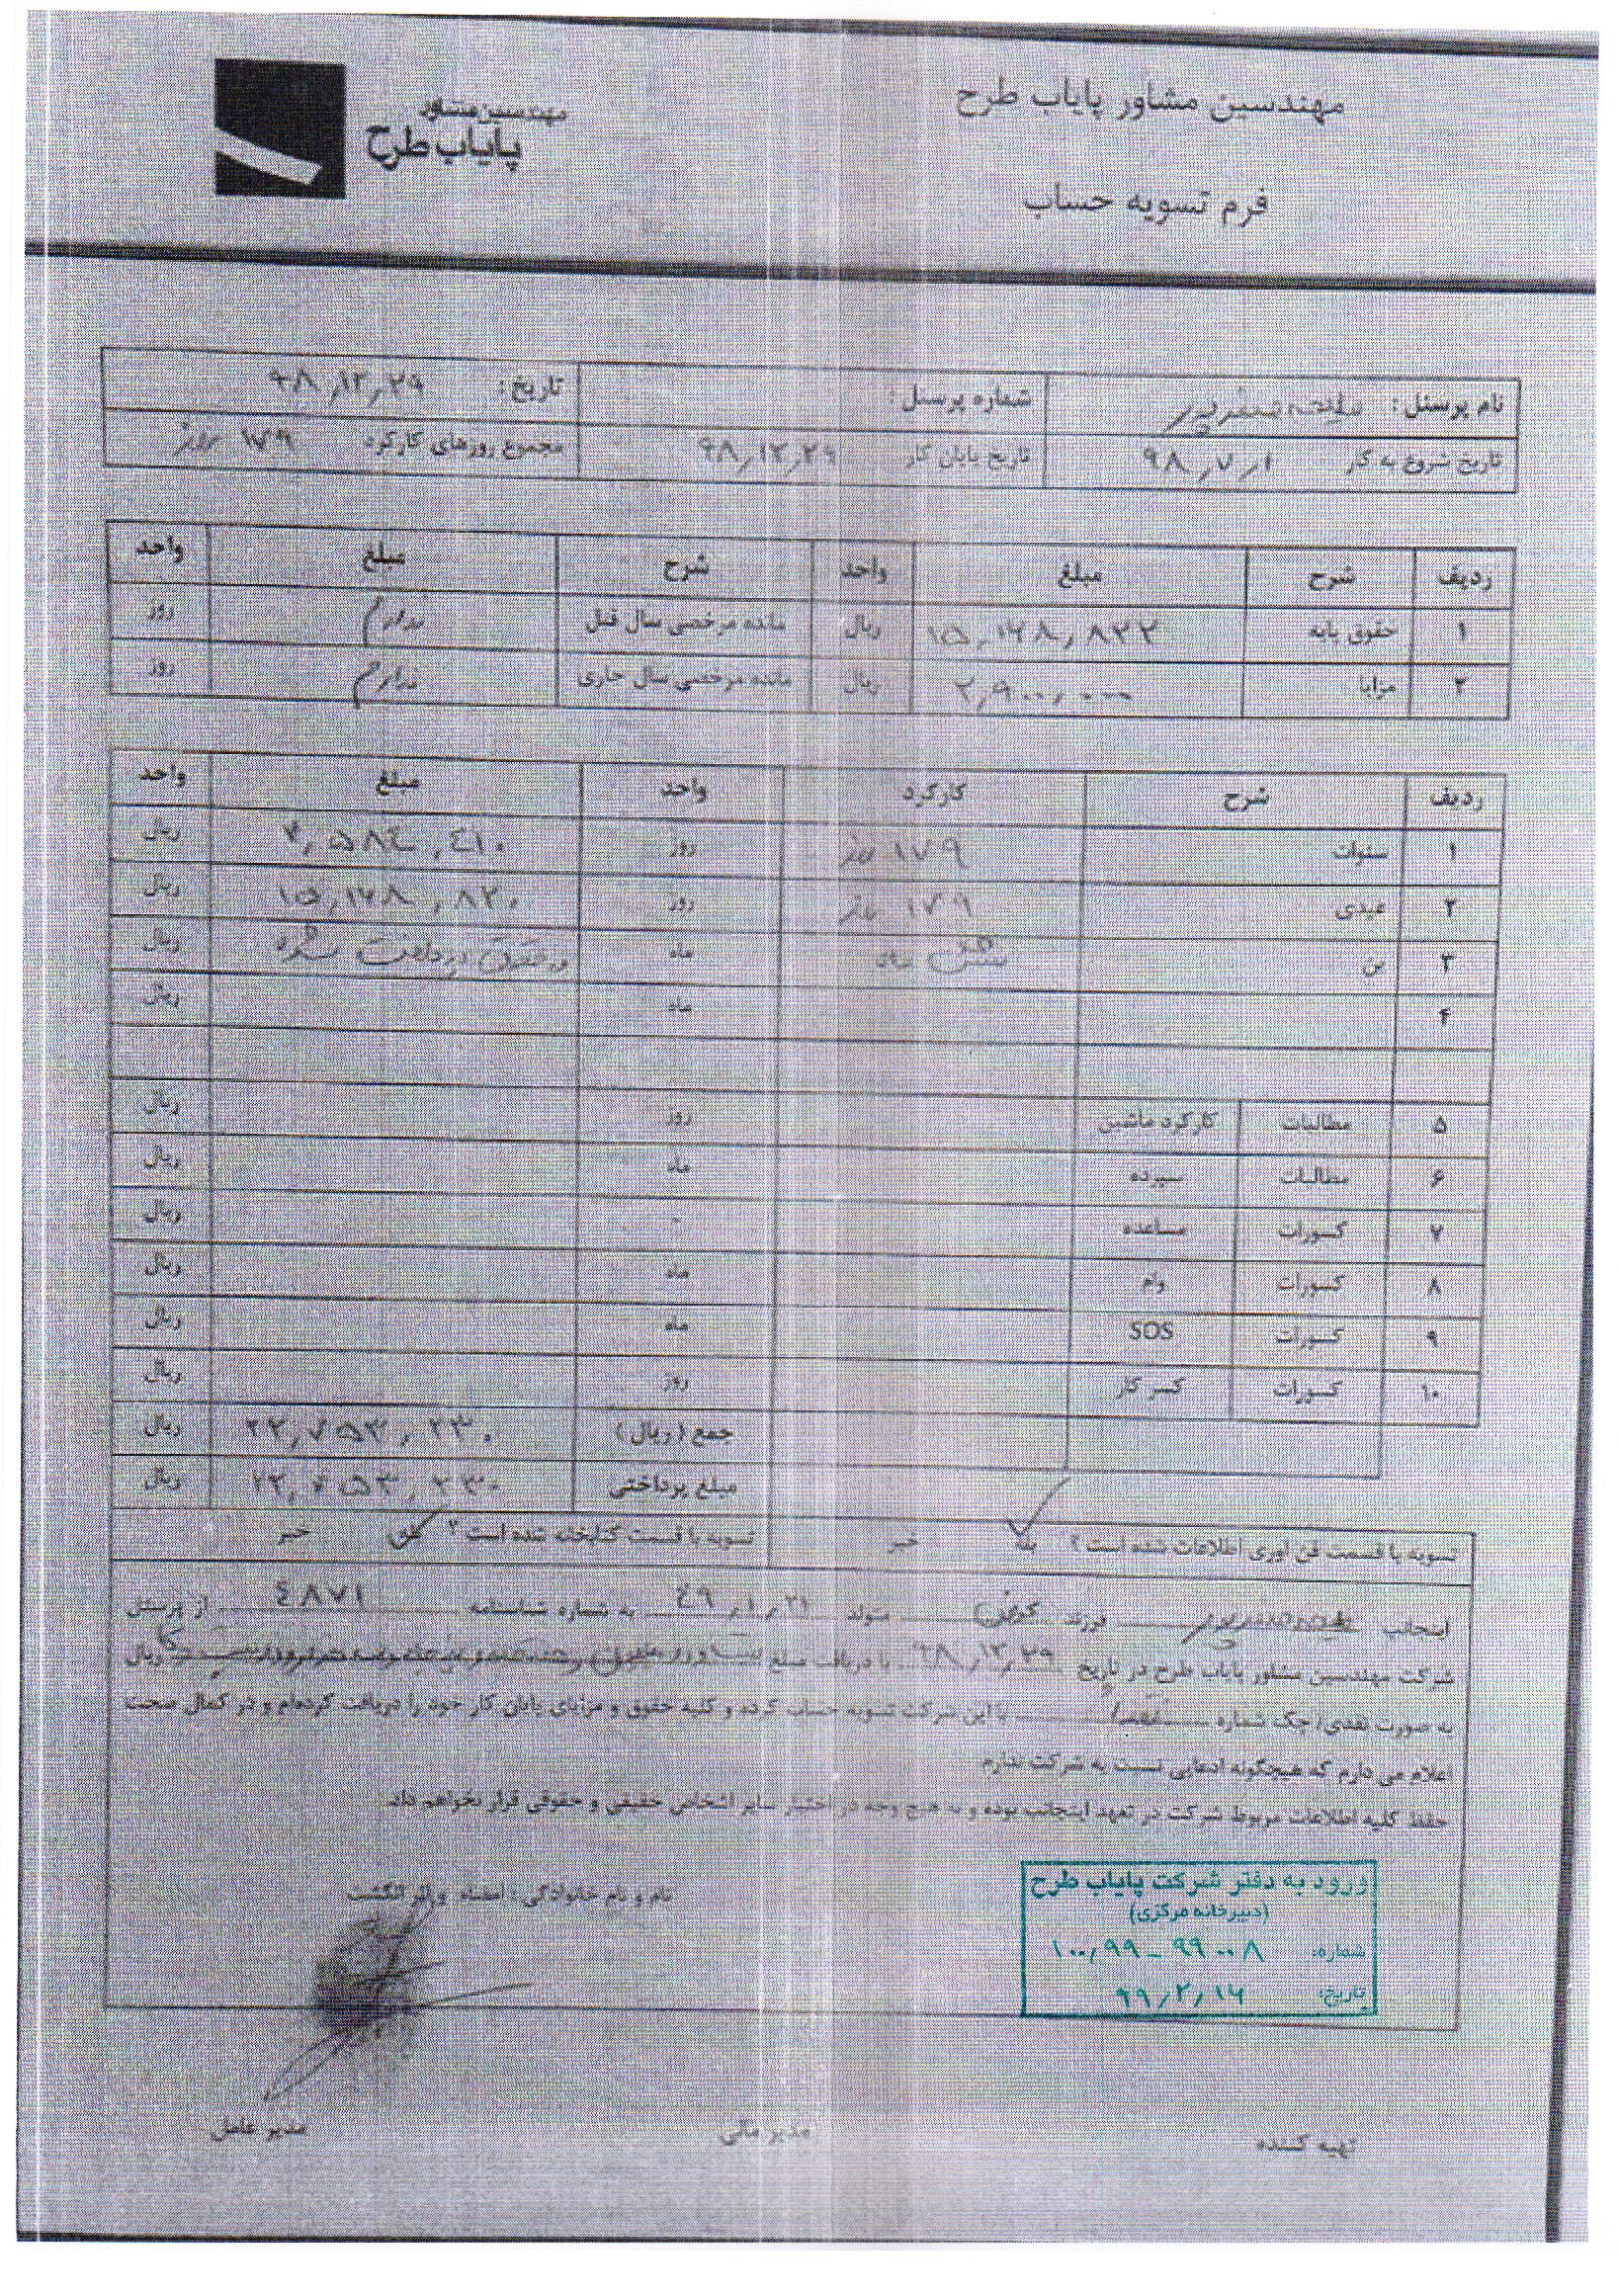 مهندسین مشاور پایاب طرح
مهندسین مشاور
پایاب طرح
فرم تسویه حساب
نام پرسنل : شماره پرسنل : تاریخ : ۹۸,۱۲,۲۹
تاریخ شروع به کار ۹۸,۷,۱ تاریخ پایان کار ۹۸,۱۲,۲۹ مجموع روزهای کارکرد ۱۷۹ روز
ردیف شرح مبلغ واحد شرح مبلغ واحد
۱ حقوق پایه ۱۵,۱۶۸,۸۲۲ ریال مانده مرخصی سال قبل ندارم روز
۲ مزایا ۲,۹۰۰,۰۰۰ ریال مانده مرخصی سال جاری ندارم روز
ردیف شرح کارکرد واحد مبلغ واحد
۱ سنوات ۱۷۹ روز روز ۷,۵۸٤,٤۱۰ ریال
۲ عیدی ۱۷۹ روز روز ۱۵,۱۶۸,۸۲۰ ریال
۳ بن شش ماه ماه در حقوق دریافت شده ریال
۴ ماه ریال
۵ مطالبات کارکرد ماشین روز ریال
۶ مطالبات سپرده ماه ریال
۷ کسورات مساعده - ریال
۸ کسورات وام ماه ریال
۹ کسورات SOS ماه ریال
۱۰ کسورات کسر کار روز ریال
جمع ( ریال ) ۲۲,۷۵۳,۲۳۰ ریال
مبلغ پرداختی ۲۲,۷۵۳,۲۳۰ ریال
تسویه با قسمت فن آوری اطلاعات شده است ؟ بله خیر تسویه با قسمت کتابخانه شده است ؟ بلی خیر
اینجانب فرزند متولد ٤۹,۱,۲۱ به شماره شناسنامه ٤۸۷۱ از پرسنل
شرکت مهندسین مشاور پایاب طرح در تاریخ ۹۸,۱۲,۲۹ با دریافت مبلغ ریال
به صورت نقدی/ چک شماره با این شرکت تسویه حساب کرده و کلیه حقوق و مزایای پایان کار خود را دریافت کرده‌ام و در کمال صحت
اعلام می دارم که هیچگونه ادعایی نسبت به شرکت ندارم
حفظ کلیه اطلاعات مربوط شرکت در تعهد اینجانب بوده و به هیچ وجه در اختیار سایر اشخاص حقیقی و حقوقی قرار نخواهم داد.
نام و نام خانوادگی : امضاء و اثر انگشت
ورود به دفتر شرکت پایاب طرح
(دبیرخانه مرکزی)
شماره: ۱۰۰,۹۹-۹۹۰۰۸
تاریخ: ۹۹,۲,۱۶
تهیه کننده مدیر مالی مدیر عامل